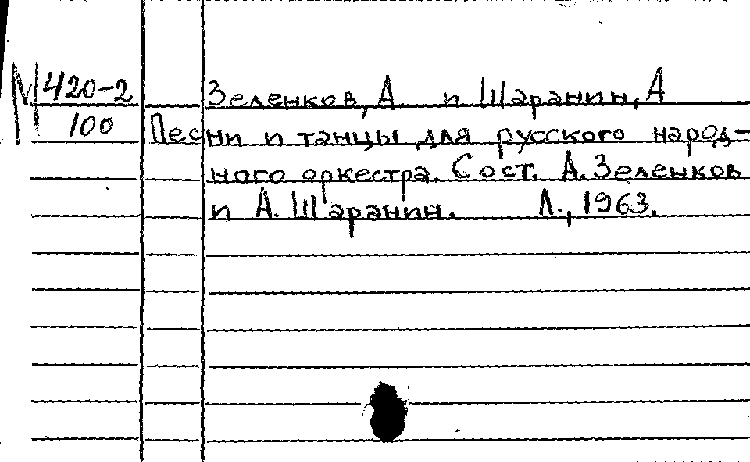 М 420-2
100
Зеленков, А и Шаранин, А
Песни и танцы для русского народ-
ного оркестра. Сост. А. Зеленков
и А. Шаранин. Л., 1963.